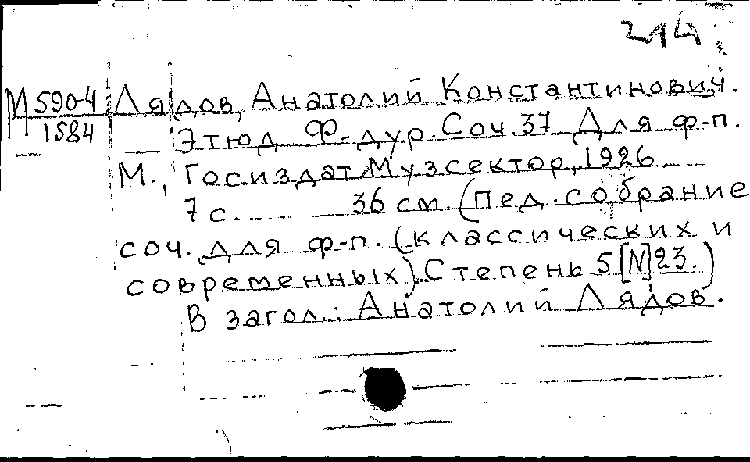 214
М 590-4 Лядов, Анатолий Константинович.
1584 Этюд Ф-дур. Соч. 37 Для ф-п.
М., Госиздат Музсектор, 1926
7 с. 36 см. (Пед. собрание
соч. для ф-п. (классических и
современных). Степень 5 [N] 23.)
В загол.: Анатолий Лядов.